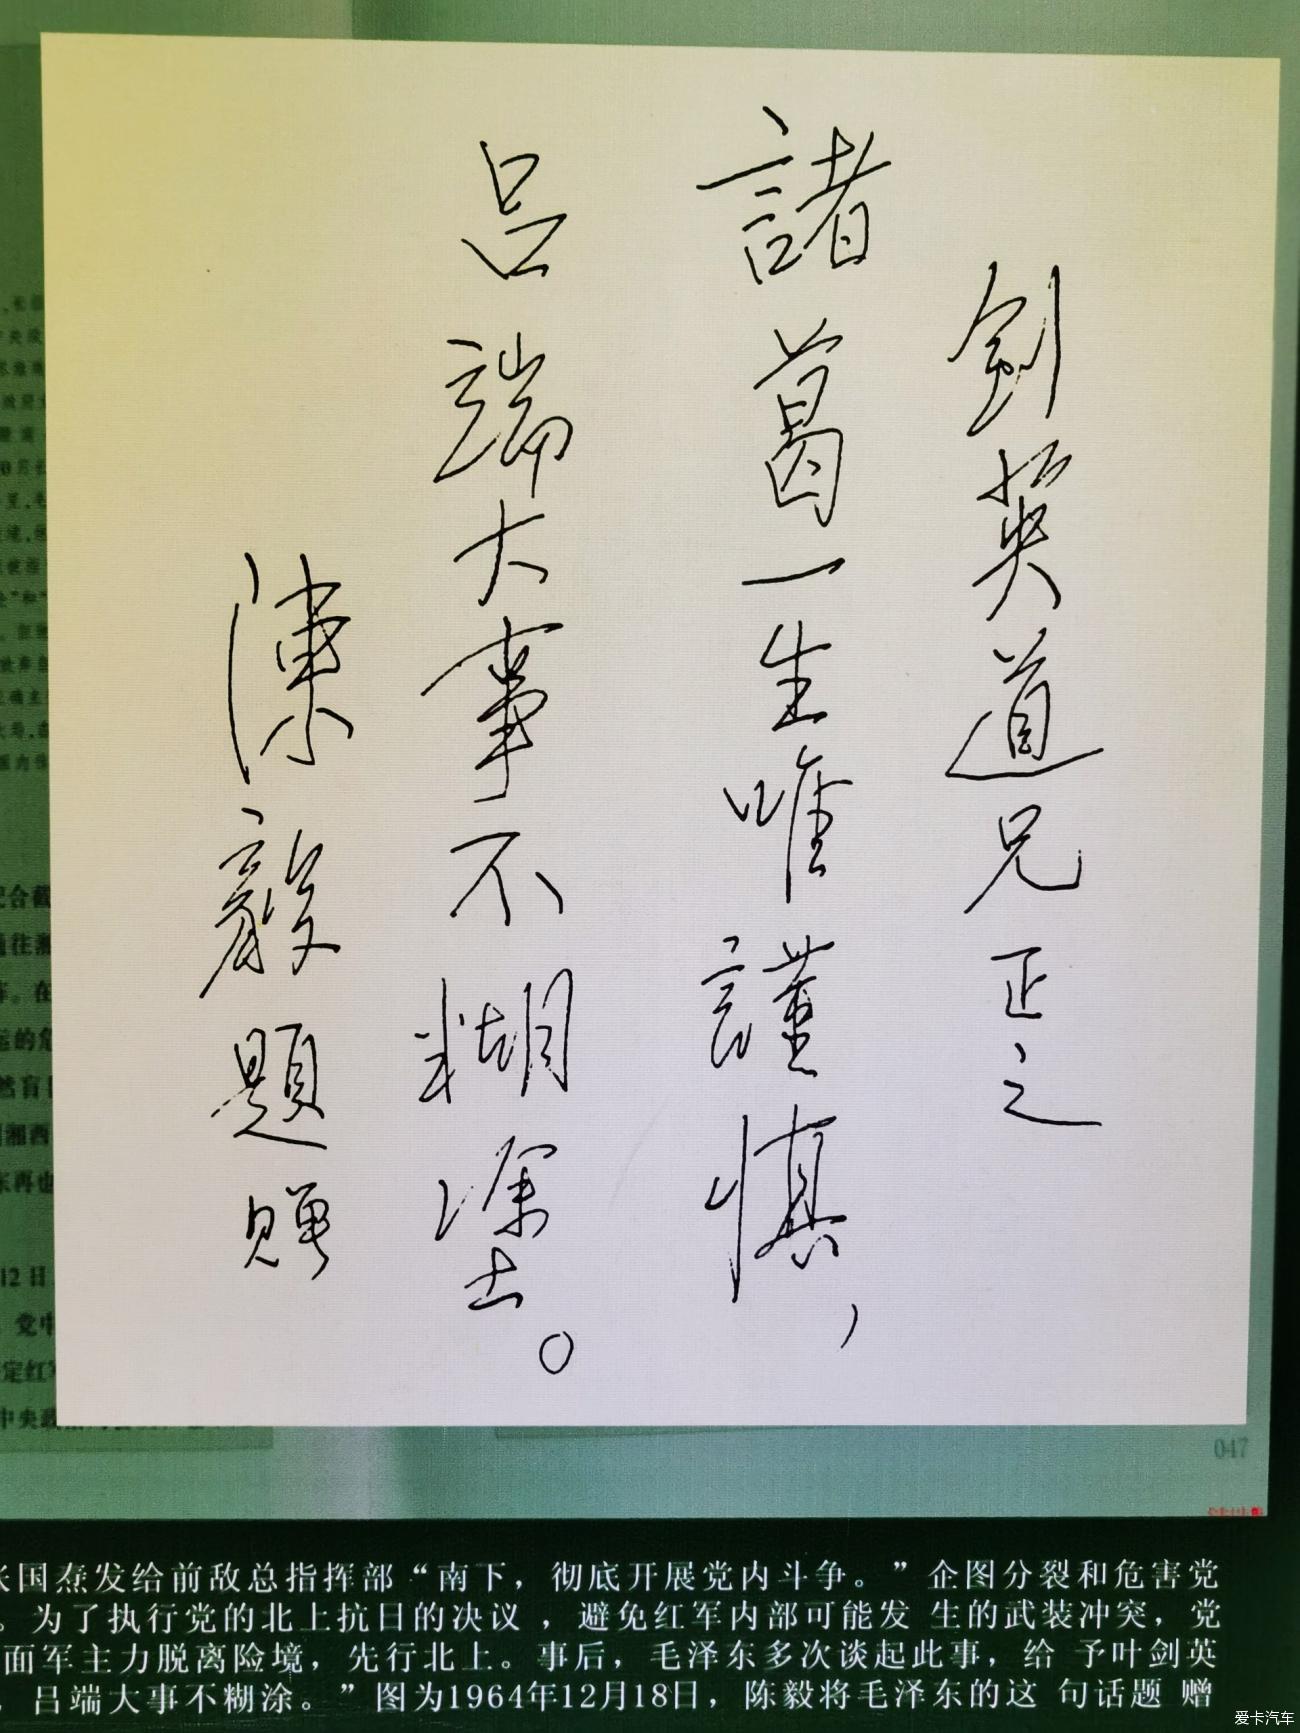 劍英道兄正之
諸葛一生唯謹慎,
吕端大事不糊塗。
陳毅題贈
047
张国焘发给前敌总指挥部“南下，彻底开展党内斗争。”企图分裂和危害党
。为了执行党的北上抗日的决议，避免红军内部可能发 生的武装冲突，党
面军主力脱离险境，先行北上。事后，毛泽东多次谈起此事，给 予叶剑英
，吕端大事不糊涂。”图为1964年12月18日，陈毅将毛泽东的这 句话题 赠
爱卡汽车